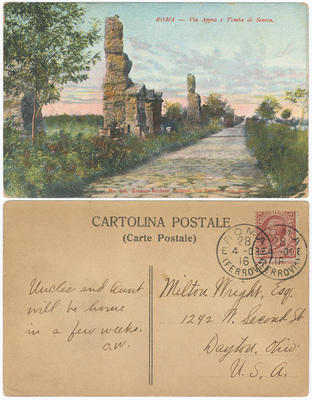 ROMA — Via Appia e Tomba di Seneca.
CARTOLINA POSTALE
(Carte Postale)
ROMA
28
4-
16
(FERROVIA)
Uncleo and aunt
will be home
in a few weeks.
O.W.
Milton Wright, Esq.
1242 W. Second St
Dayton, Ohio
U. S. A.